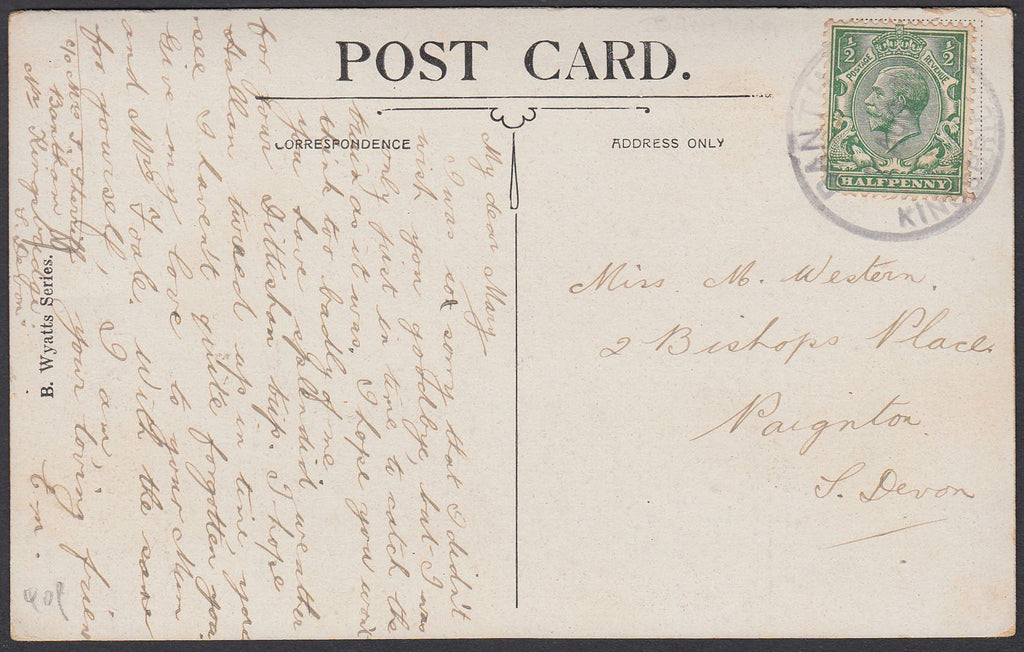 POST CARD.
CORRESPONDENCE
ADDRESS ONLY
1/2 1/2
POSTAGE REVENUE
HALFPENNY
BANTH
KING
Miss. M. Western.
2 Bishops Place
Paignton
S. Devon
My dear Mary
I was so sorry that I didn't
wish you goodbye, but I was
only just in time to catch the
train as it was. I hope you wont
think too badly of me
you have splendid weather
for your Dittisham trip. I hope
Allan turned up in time
for
see I havent quite forgotten you.
Give my love to your Mum
and Mrs Foale. With the same
for yourself, I am,
your loving friend
E. M.
c/o Mrs
Bantham
Nr Kingsbridge
S. Devon.
B. Wyatts Series.